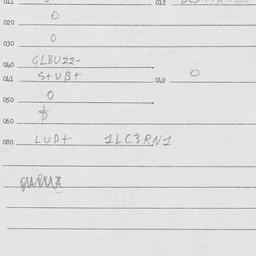 011 012
020 0
030 0
040 GL8UZZ-
041 S+UB+ 042 0
050 0
060
080 LUD+ 1LC3RN1